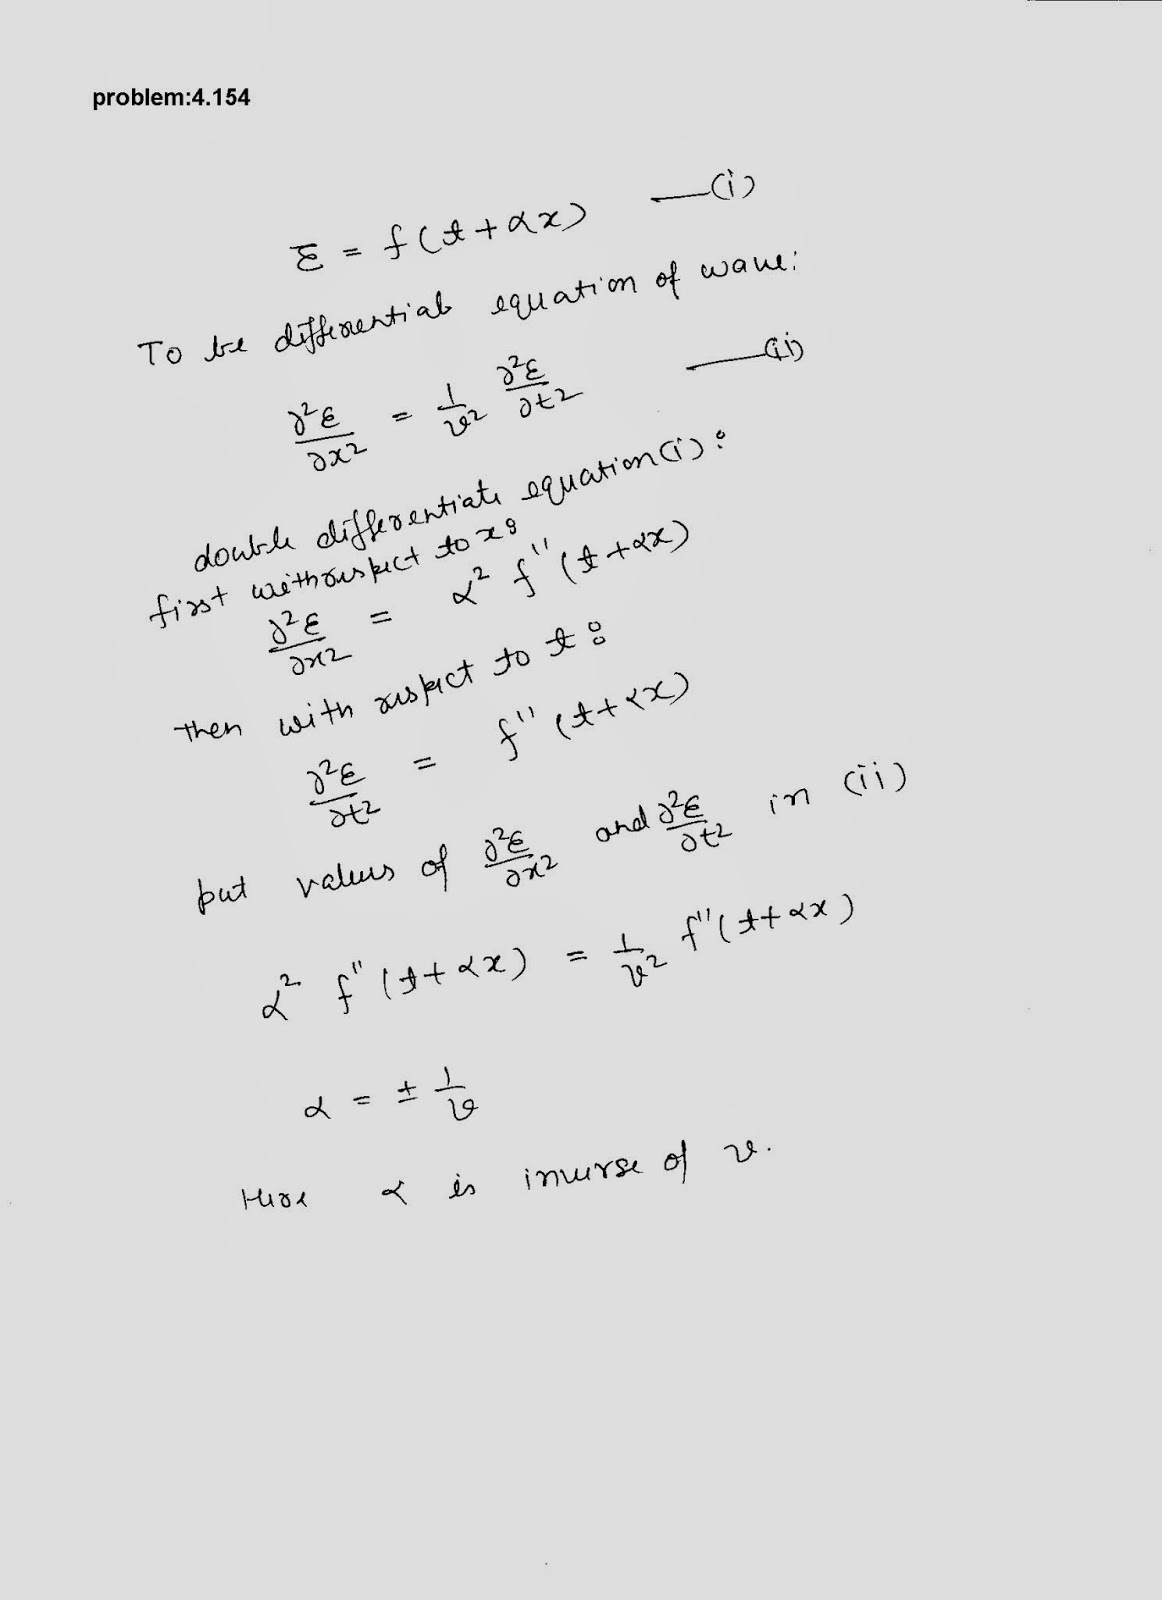 problem:4.154
ξ = f(t+αx) —(i)
To be differential equation of wave:
∂²ξ/∂x² = 1/v² ∂²ξ/∂t² —(ii)
double differentiate equation(i):
first with respect to x:
∂²ξ/∂x² = α² f''(t+αx)
then with respect to t:
∂²ξ/∂t² = f''(t+αx)
put values of ∂²ξ/∂x² and ∂²ξ/∂t² in (ii)
α² f''(t+αx) = 1/v² f''(t+αx)
α = ± 1/v
Here α is inverse of v.